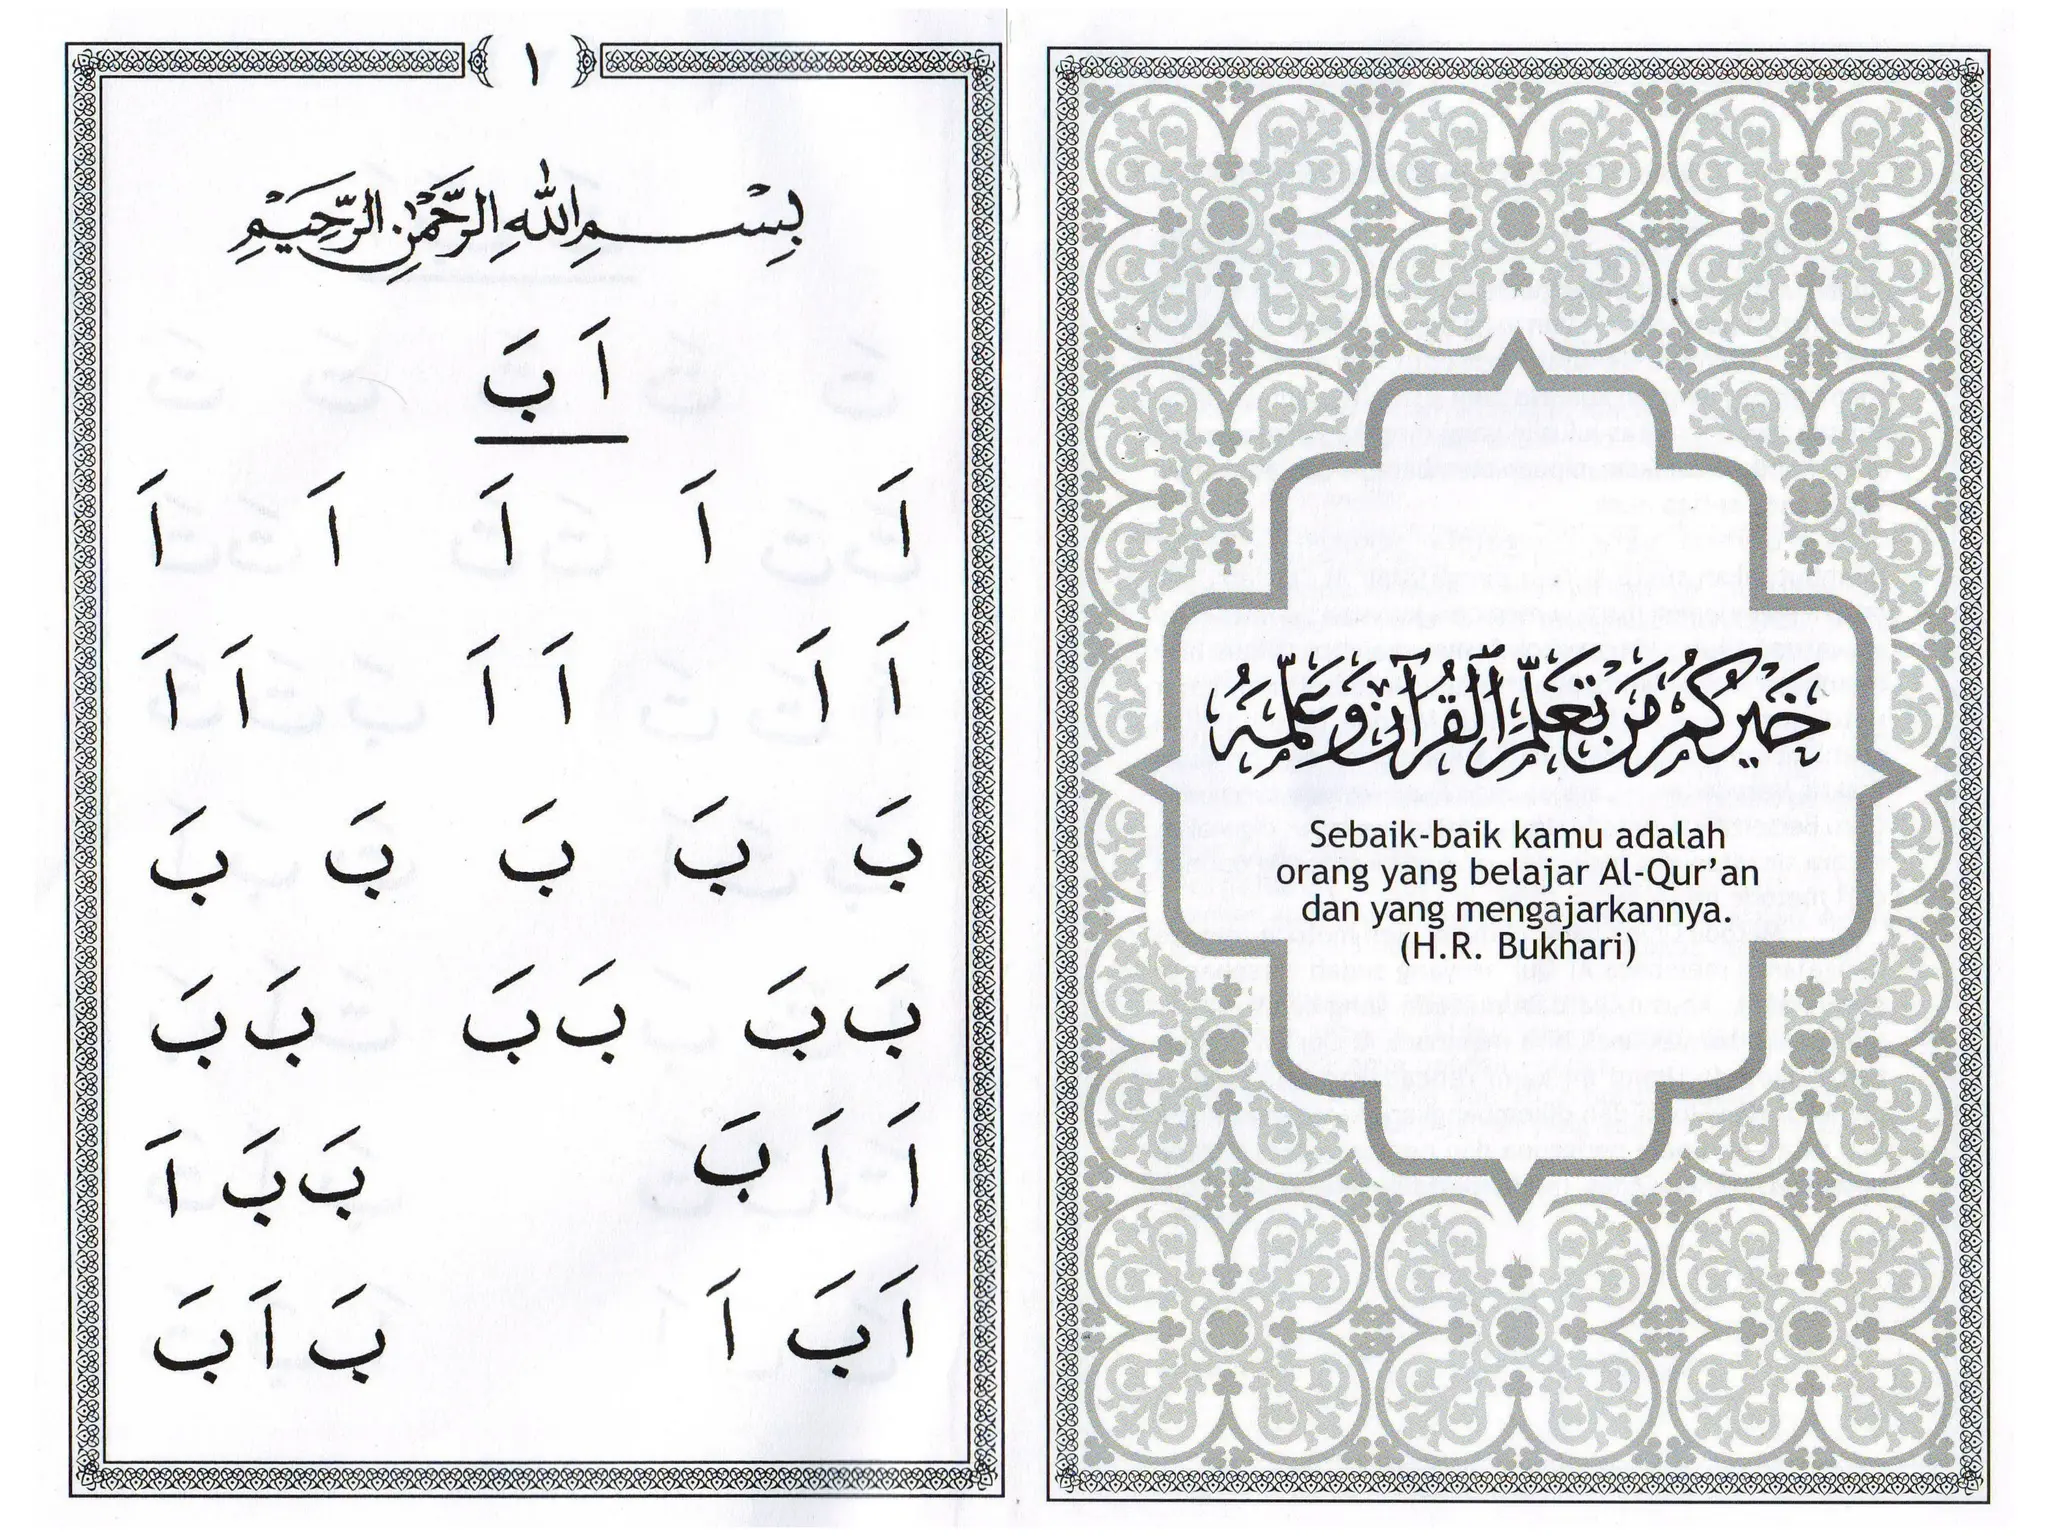 خَيْرُكُمْ مَنْ تَعَلَّمَ الْقُرْآنَ وَعَلَّمَهُ
Sebaik-baik kamu adalah
orang yang belajar Al-Qur’an
dan yang mengajarkannya.
(H.R. Bukhari)
١
بِسْمِ اللّٰهِ الرَّحْمٰنِ الرَّحِيْمِ
اَ بَ
اَ اَ اَ اَ اَ
اَ اَ اَ اَ اَ اَ
بَ بَ بَ بَ بَ
بَ بَ بَ بَ بَ بَ
اَ اَ بَ بَ بَ اَ
اَ بَ اَ بَ اَ بَ